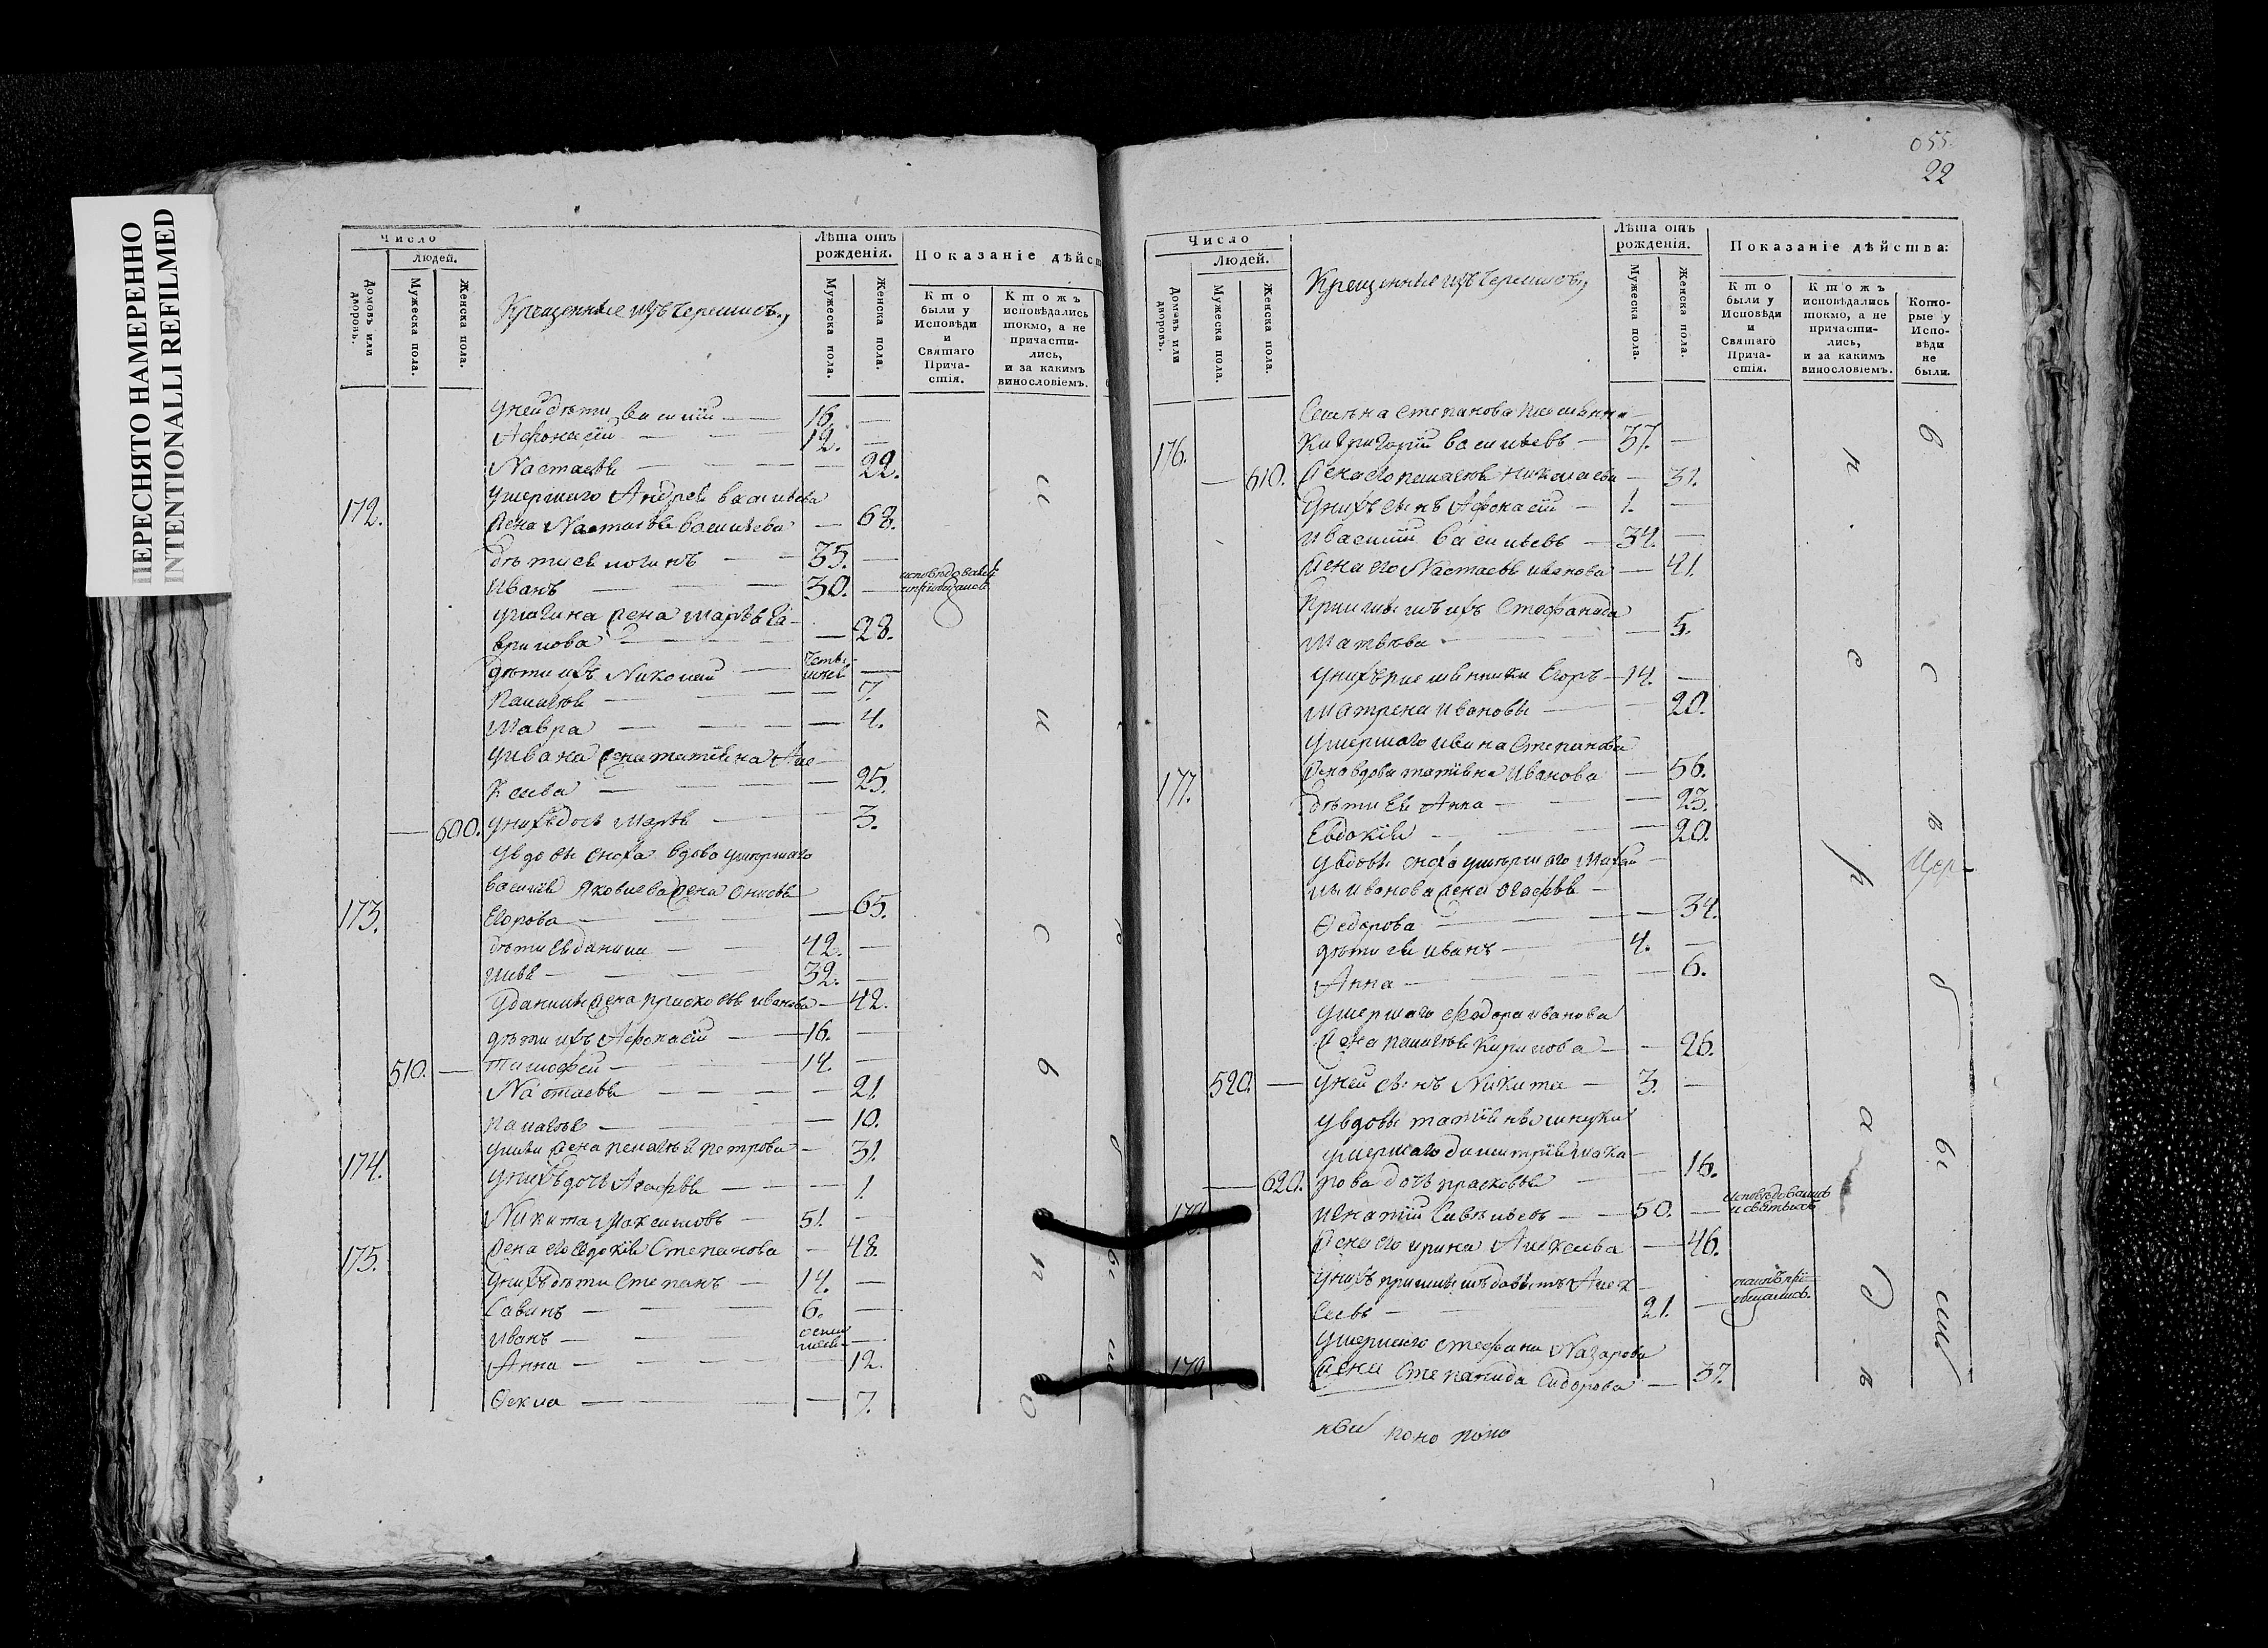 ПЕРЕСНЯТО НАМЕРЕННО
INTENTIONALLI REFILMED
Число
людей.
Домовъ или дворовъ.
Мужеска пола.
Женска пола.
Крещенные изъ черемисъ,
Лѣта отъ рожденія.
Мужеска пола.
Женска пола.
Показаніе дѣйст
Кто были у Исповѣди и Святаго Прича-стія.
Ктожъ исповѣдались токмо, а не причасти-лись, и за какимъ винословіемъ.
Уней дѣти Василій — 16. —
Афонасій — 12. —
Настасья — 22.
Умершаго Андрея Васильева
172. жена Настасья Васильева — 68.
дѣти ея логинъ — 35. —
Иванъ — 30. —
жена Марья Га-
врилова — 28.
дѣти ихъ Николай —
Палагѣя — 7.
Мавра — 4.
Уивана жена татіяна Але-
ксѣева — 25.
600. Унихъ дочь Марья — 3.
Увдовы сноха вдова умершаго
Василія Яковлева жена
173. Егорова — 65.
дѣти ея данила — 42. —
32. —
Уданилы жена прасковья иванова — 42.
дѣти ихъ Афонасій — 16. —
510. — тимофей — 14. —
Настасья — 21.
палагѣя — 10.
174. жена пелагѣя петрова — 31.
Унихъ дочь Агафья — 1.
Никита Максимовъ — 51. —
175. жена его Евдокія Степанова — 48.
Унихъ дѣти Степанъ — 14. —
Савинъ — 6. —
Иванъ —
Анна — 12.
Ѳекла — 7.
055.
22
Число
людей.
Домовъ или дворовъ.
Мужеска пола.
Женска пола.
Крещенные изъ черемисъ,
Лѣта отъ рожденія.
Мужеска пола.
Женска пола.
Показаніе дѣйства:
Кто были у Исповѣди и Святаго Прича-стія.
Ктожъ исповѣдались токмо, а не причасти-лись, и за какимъ винословіемъ.
Кото-рые у Испо-вѣди не были.
Степанова племянни-
176. ки Григорій Васильевъ — 37. —
— 610. жена его пелагѣя Николаева — 31.
Унихъ сынъ Афонасій — 1. —
Ивасилій Васильевъ — 34. —
жена его Настасья иванова — 41.
ихъ Стефанида
Матвѣева — 5.
Унихъ племянники Егоръ — 14. —
Матрена Ивановы — 20.
Умершаго ивана Степанова
177. жена вдова татіяна Иванова — 56.
дѣти Ея Анна — 23.
Евдокія — 20.
Увдовы сноха умершаго Михай-
лы Иванова жена Агафья
Ѳедорова — 34.
дѣти ея иванъ — 4. —
Анна — 6.
Умершаго Федора иванова
жена палагѣя Кирилова — 26.
520. — Уней сынъ Никита — 3. —
Увдовы татіяны внука
умершаго димитрія Маха-
— 620. рова дочь прасковья — 16.
Игнатій Савельевъ — 50. —
жена его ирина Алексѣева — 46.
Унихъ Алек-
сѣевъ — 21. —
Умершаго Стефана Назарова
жена Степанида Сидорова — 37.
Цер-